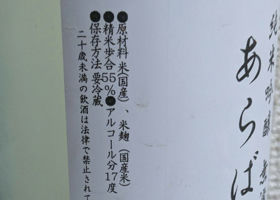 純米吟醸
あらば
●原材料 米(国産)、米麹(国産米)
●精米歩合 55%●アルコール分17度
●保存方法 要冷蔵
二十歳未満の飲酒は法律で禁止されて